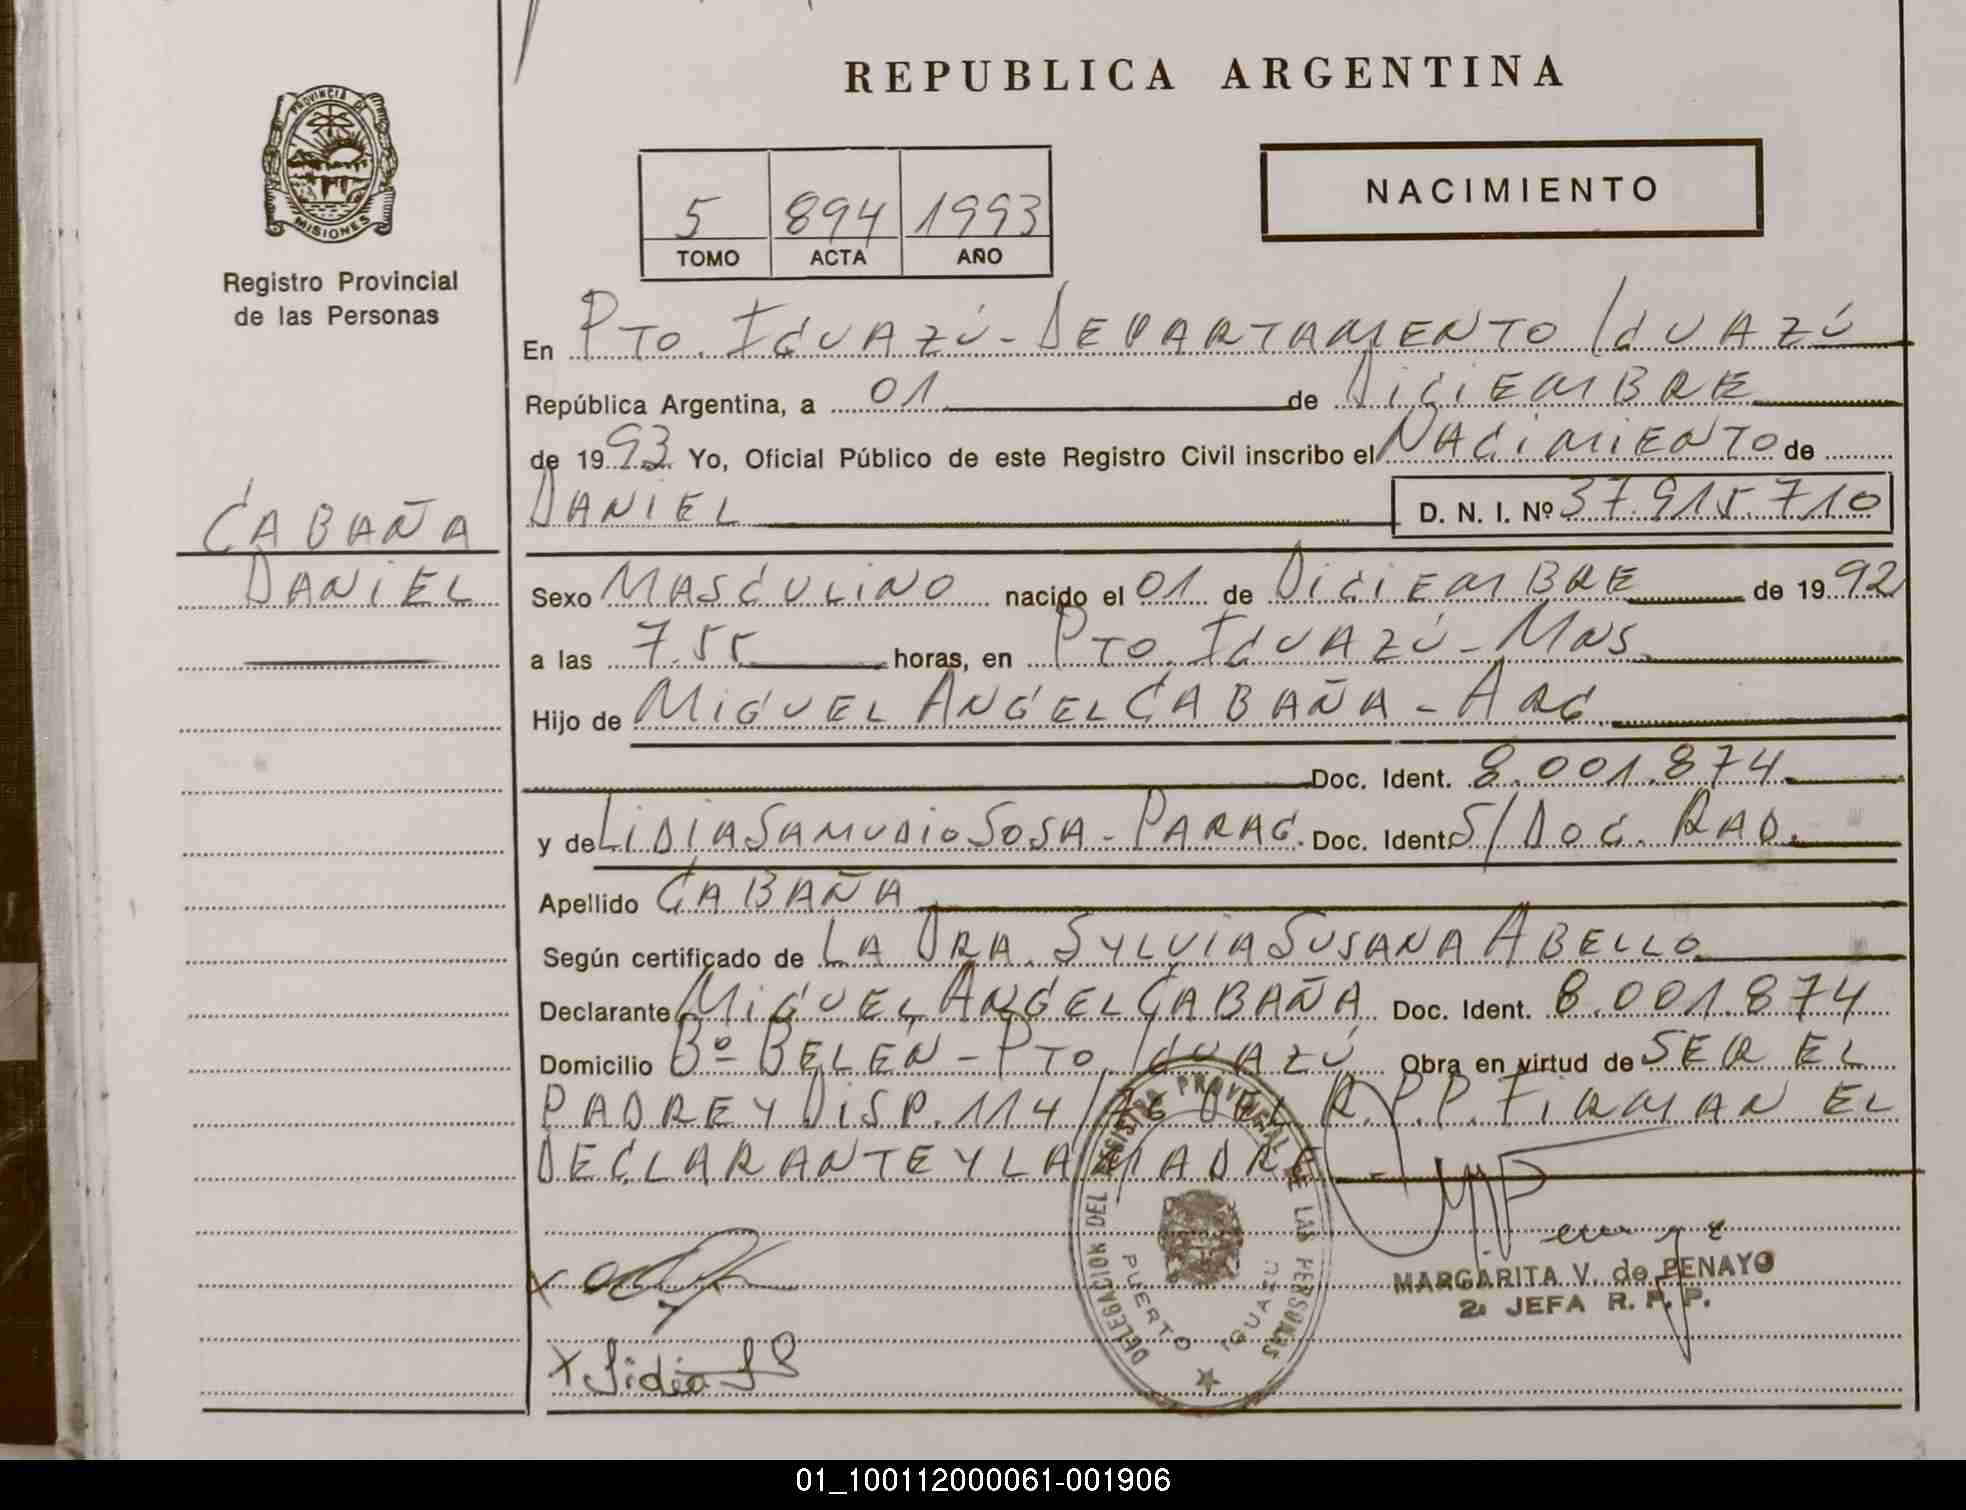 REPUBLICA ARGENTINA
PROVINCIA DE
MISIONES
Registro Provincial
de las Personas
NACIMIENTO
5 894 1993
TOMO ACTA AÑO
En PTO. IGUAZÚ - DEPARTAMENTO IGUAZÚ
República Argentina, a 01 de DICIEMBRE
de 1993 Yo, Oficial Público de este Registro Civil inscribo el NACIMIENTO de
DANIEL D. N. I. Nº 37.915.710
CABAÑA
DANIEL
Sexo MASCULINO nacido el 01 de DICIEMBRE de 1992
a las 7.55 horas, en PTO. IGUAZÚ - MNS.
Hijo de MIGUEL ANGEL CABAÑA - ARG.
Doc. Ident. 8.001.874
y de LIDIA SAMUDIO SOSA - PARAG. Doc. Ident. S/DOC. RAD.
Apellido CABAÑA
Según certificado de LA DRA. SYLVIA SUSANA ABELLO
Declarante MIGUEL ANGEL CABAÑA Doc. Ident. 8.001.874
Domicilio Bº BELÉN - PTO. IGUAZÚ Obra en virtud de SER EL
PADRE Y DISP. 114/76 DEL R.P.P. FIRMAN EL
DECLARANTE Y LA MADRE -
DELEGACION DEL REGISTRO PROVINCIAL DE LAS PERSONAS
PUERTO IGUAZU
MARGARITA V. de PENAYO
2ª JEFA R. P. P.
X
X Lidia S S
01_100112000061-001906